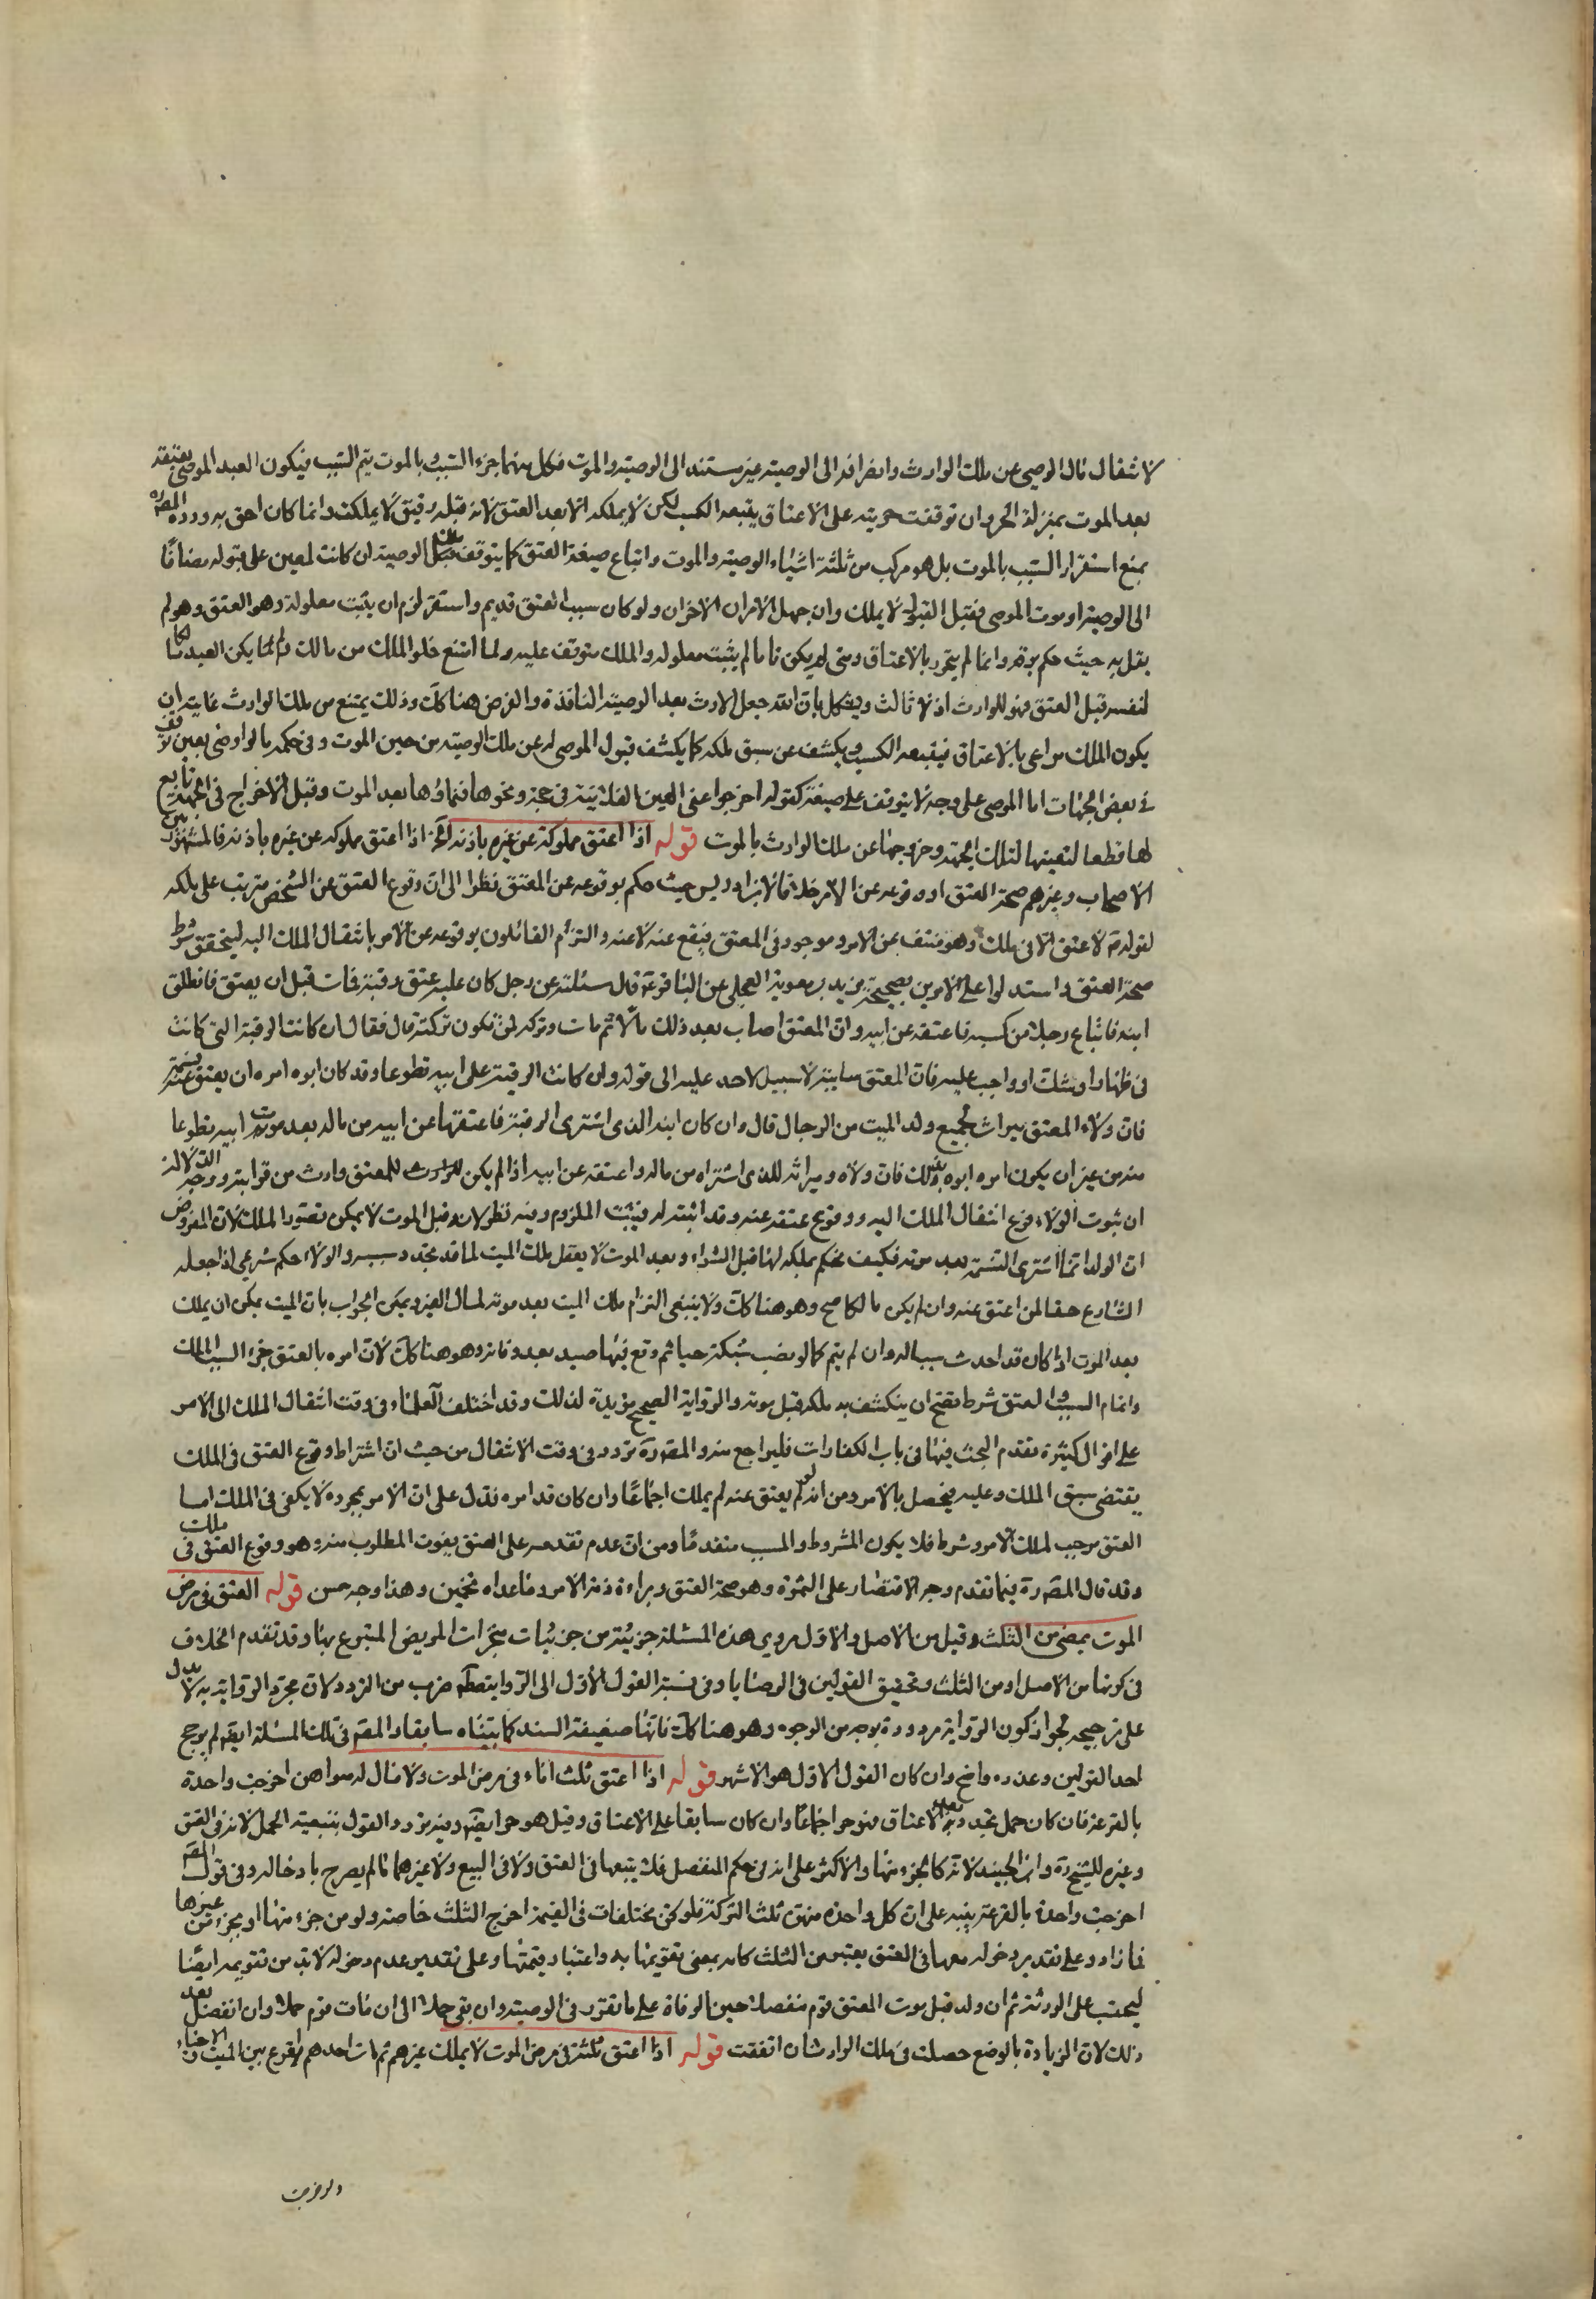 لانتقال مال الموصي عن ملك الوارث وانصرافه الى الوصية غير مستند الى الوصية والموت فكل منهما جزء السبب وبالموت يتم السبب فيكون العبد الموصى بعتقه
بعد الموت بمنزلة الحر وان توقفت حريته على الاعتاق يتبعه الكسب لكن لا يملكه الا بعد العتق لانه قبله رقيق لا يملك وانما كان احق به ورده المصره
بمنع استقرار السبب بالموت بل هو مركب من ثلثة اشياء الوصية والموت وايقاع صيغة العتق كما يتوقف ملك الوصية ان كانت لمعين على قبوله مضافا
الى الوصية او موت الموصى فقبل القبول لا يملك وان حصل الامران الاخران ولو كان سبب العتق قد تم واستقر لزم ان يثبت معلوله وهو العتق وهو لم
يقل به حيث حكم برقه وانما لم يتحرر بالاعتاق ومتى لم يكن تاما لم يثبت معلوله والملك متوقف عليه ولما امتنع خلو الملك من مالك ولما لم يكن العبد مالكا
لنفسه قبل العتق فهو للوارث اذ لا ثالث ويشكل بان الله جعل الارث بعد الوصية النافذة والفرض هنا كك وذلك يمتنع من ملك الوارث غايته ان
يكون الملك مراعى بالاعتاق فيتبعه الكسب ويكشف عن سبق ملكه كما يكشف قبول الموصى له عن ملك الوصية من حين الموت وفي حكمه ما لو اوصى بعين توقف
في بعض الجهات اما الموصى على وجه لا يتوقف على صيغة كقوله اخرجوا عني العين الفلانية في حجة ونحوها فنماؤها بعد الموت وقبل الاخراج في الجهة تابع
لها قطعا لتعينها لتلك الجهة وخروجها عن ملك الوارث بالموت قوله اذا اعتق مملوكه عن غيره باذنه الخ اذا اعتق مملوكه عن غيره باذنه فالمشهور بين
الاصحاب وغيرهم صحة العتق ووقوعه عن الامر خلافا لابن ادريس حيث حكم بوقوعه عن المعتق نظرا الى ان وقوع العتق عن الشخص مترتب على ملكه
لقوله ص لا عتق الا في ملك وهو منتف عن الامر وموجود في المعتق فيقع عنه لا عنه والتزم القائلون بوقوعه عن الامر بانتقال الملك اليه ليتحقق شرط
صحة العتق واستدلوا على الامرين بصحيحة بريد بن معوية العجلي عن الباقر ع قال سئلته عن رجل كان عليه عتق رقبة فمات قبل ان يعتق فانطلق
ابنه فابتاع رجلا من كسبه فاعتقه عن ابيه وان المعتق اصاب بعد ذلك مالا ثم مات وتركه لمن تكون تركته قال فقال ان كانت الرقبة التي كانت
في ظهار او شك او واجب عليه فان المعتق سايبة لا سبيل لاحد عليه الى قوله وان كانت الرقبة على ابيه تطوعا وقد كان ابوه امره ان يعتق عنه نسمة
فان ولاء المعتق ميراث لجميع ولد الميت من الرجال قال وان كان ابنه الذي اشترى الرقبة فاعتقها عن ابيه من ماله بعد موت ابيه تطوعا
منه من غير ان يكون امره ابوه بذلك فان ولاءه وميراثه للذي اشتراه من ماله واعتقه عن ابيه اذا لم يكن للمعتق وارث من قرابته ووجه الدلالة
ان ثبوت الولاء فرع انتقال الملك اليه ووقوع عتقه عنه وقد اثبته له فيثبت الملزوم وفيه نظر لانه قبل الموت لا يمكن تصور الملك لان المفروض
ان الولد انما اشترى النسمة بعد موته فكيف نحكم بملكه لها قبل الشراء وبعد الموت لا يعقل ملك الميت لما قد تجدد سببه والولاء حكم شرعي اذا جعله
الشارع حقا لمن اعتق عنه وان لم يكن مالكا صح وهو هنا كك ولا ينبغي التزام ملك الميت بعد موته لمال الغير ويمكن الجواب بان الميت يمكن ان يملك
بعد الموت اذا كان قد احدث سببا له وان لم يتم كما لو نصب شبكة حيا ثم وقع فيها صيد بعد وفاته وهو هنا كك لان امره بالعتق جزء السبب للملك
واتمام السبب والعتق شرط فصح ان ينكشف به ملكه قبل موته والرواية الصحيح مؤيدة لذلك وقد اختلف العلماء في وقت انتقال الملك الى الامر
على اقوال كثيرة تقدم البحث فيها في باب الكفارات فليراجع منه والمصره تردد في وقت الانتقال من حيث ان اشتراط وقوع العتق في الملك
يقتضي سبق الملك وعليه فيحصل بالامر ومن انه لو لم يعتق عنه لم يملك اجماعا وان كان قد امره فدل على ان الامر بمجرده لا يكفي في الملك اما
العتق موجب لملك الامر وشرط فلا يكون المشروط والمسبب متقدما ومن ان عدم تقدمه على العتق يفوت المطلوب منه وهو وقوع العتق في ملك
وقد قال المصره فيما تقدم وجه الاقتصار على الثمرة وهو صحة العتق وبراءة ذمة الامر وما عداه تخمين وهذا وجه حسن قوله العتق في مرض
الموت يمضى من الثلث وقيل من الاصل والاول مروي هذه المسئلة جزئية من جزئيات منجزات المريض المتبرع بها وقد تقدم الخلاف
في كونها من الاصل او من الثلث وتحقيق القولين في الوصايا وفي نسبة القول الاول الى الرواية ضرب من التردد لان مجرد الرواية به لا يدل
على ترجيحه لجواز كون الرواية مردودة بوجه من الوجوه وهو هنا كك فانها ضعيفة السند كما بيناه سابقا والمصم في تلك المسئلة ايضا لم يرجح
احد القولين وعذره واضح وان كان القول الاول هو الاشهر قوله اذا اعتق ثلث اماء في مرض الموت ولا مال له سواهن اخرجت واحدة
بالقرعة فان كان حمل تجدد بعد الاعتاق فهو حر اجماعا وان كان سابقا على الاعتاق وقيل هو حر ايضا وفيه تردد القول بتبعية الحمل لامه في العتق
وغيره للشيخ ره وابن الجنيد لانه كالجزء منها والاكثر على انه في حكم المنفصل فلا يتبعها في العتق ولا في البيع ولا غيرهما ما لم يصرح بادخاله وفي قول المصم
اخرجت واحدة بالقرعة تنبيه على ان كل واحدة منهن ثلث التركة فلو كن مختلفات في القيمة اخرج الثلث خاصة ولو من جزء منها او بجزء من غيرها
فما زاد وعلى تقدير دخوله معها في العتق يعتبر من الثلث كامه بمعنى تقويمها به واعتبار قيمتها وعلى تقدير عدم دخوله لا بد من تقويمه ايضا
ليحتسب على الورثة ثم ان ولد قبل موت المعتق قوم منفصلا حين الوفاة على ما تقرر في الوصية وان بقي حملا الى ان مات قوم حملا وان انفصل بعد
ذلك لان الزيادة بالوضع حصلت في ملك الوارث ان اتفقت قوله اذا اعتق ثلثة في مرض الموت لا يملك غيرهم ثم مات احدهم اقرع بين الميت والاحياء